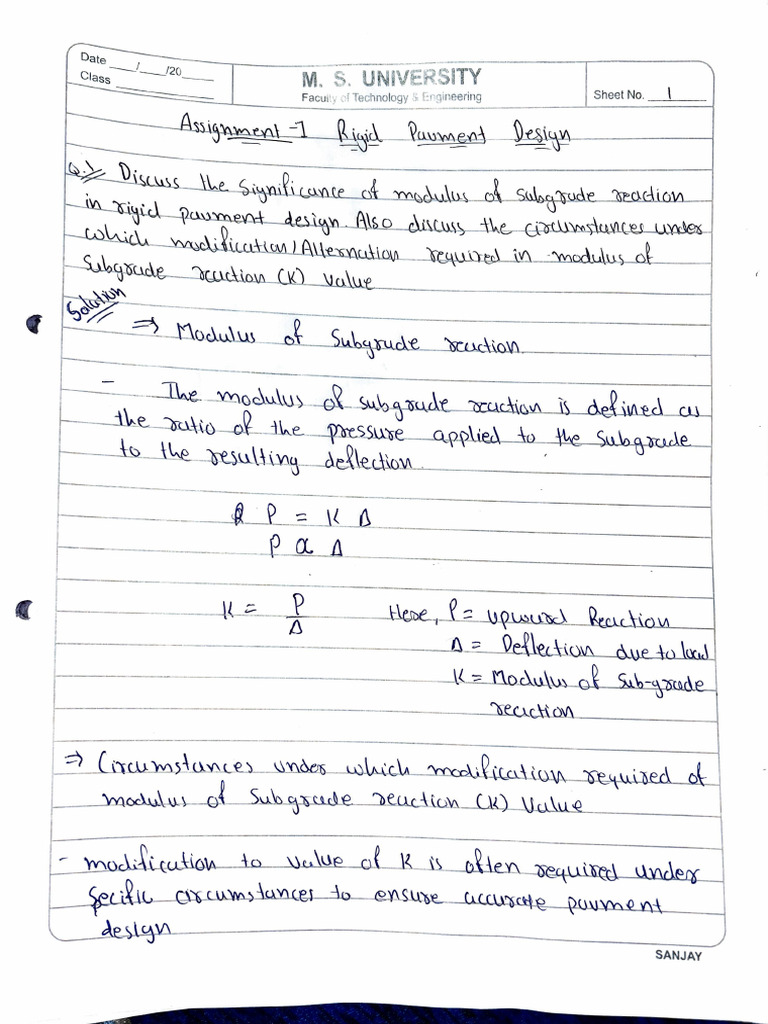 Date ___/___/20____
Class ____________
M. S. UNIVERSITY
Faculty of Technology & Engineering
Sheet No. 1
Assignment-1 Rigid Pavment Design
Q.1 Discuss the significance of modulus of subgrade reaction
in rigid pavment design. Also discuss the circumstances under
which modification/Alternation required in modulus of
Subgrade reaction (K) value
Solution
⇒ Modulus of Subgrade reaction.
- The modulus of subgrade reaction is defined as
the ratio of the pressure applied to the subgrade
to the resulting deflection.
P = K Δ
P ∝ Δ
K = P/Δ Here, P = upward Reaction
Δ = Deflection due to load
K = Modulus of Sub-grade
reaction
⇒ Circumstances under which modification required of
modulus of Subgrade reaction (K) Value
- modification to value of K is often required under
specific circumstances to ensure accurate pavment
design
SANJAY